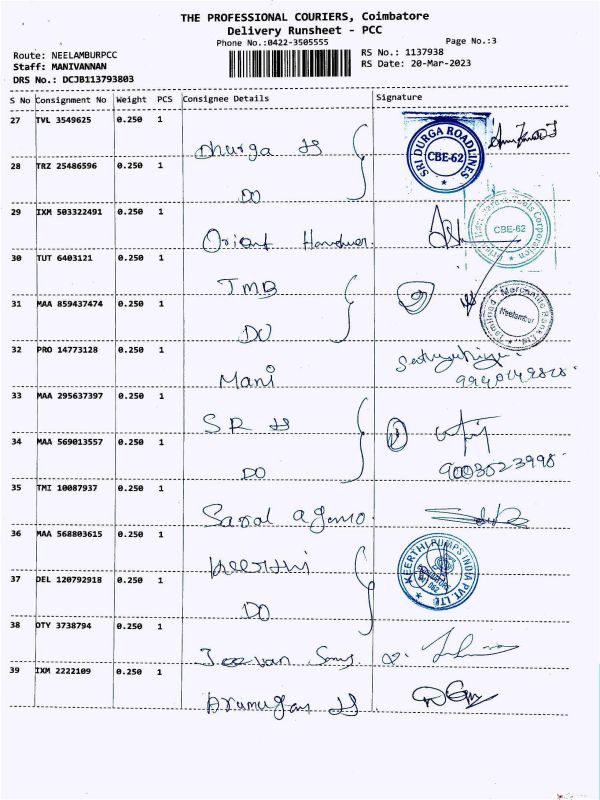 THE PROFESSIONAL COURIERS, Coimbatore
Delivery Runsheet - PCC
Phone No.:0422-3505555
Page No.:3
Route: NEELAMBURPCC
RS No.: 1137938
Staff: MANIVANNAN
RS Date: 20-Mar-2023
DRS No.: DCJB113793803
S No Consignment No Weight PCS Consignee Details Signature
27 TVL 3549625 0.250 1
Dhurga
SRI DURGA ROADLINES CBE-62
28 TRZ 25486596 0.250 1
DO
29 IXM 503322491 0.250 1
Orient
CBE-62
Corporation
30 TUT 6403121 0.250 1
TMB
31 MAA 859437474 0.250 1
DO
Tamilnad Mercantile Bank Ltd. Neelambur
32 PRO 14773128 0.250 1
Mani
33 MAA 295637397 0.250 1
S R
34 MAA 569013557 0.250 1
DO
9003023998
35 TMI 10087937 0.250 1
36 MAA 568803615 0.250 1
Keerthi
KEERTHI PUMPS INDIA PVT. LTD.
37 DEL 120792918 0.250 1
DO
38 OTY 3738794 0.250 1
Jeevan Sons
39 IXM 2222109 0.250 1
Arumugam